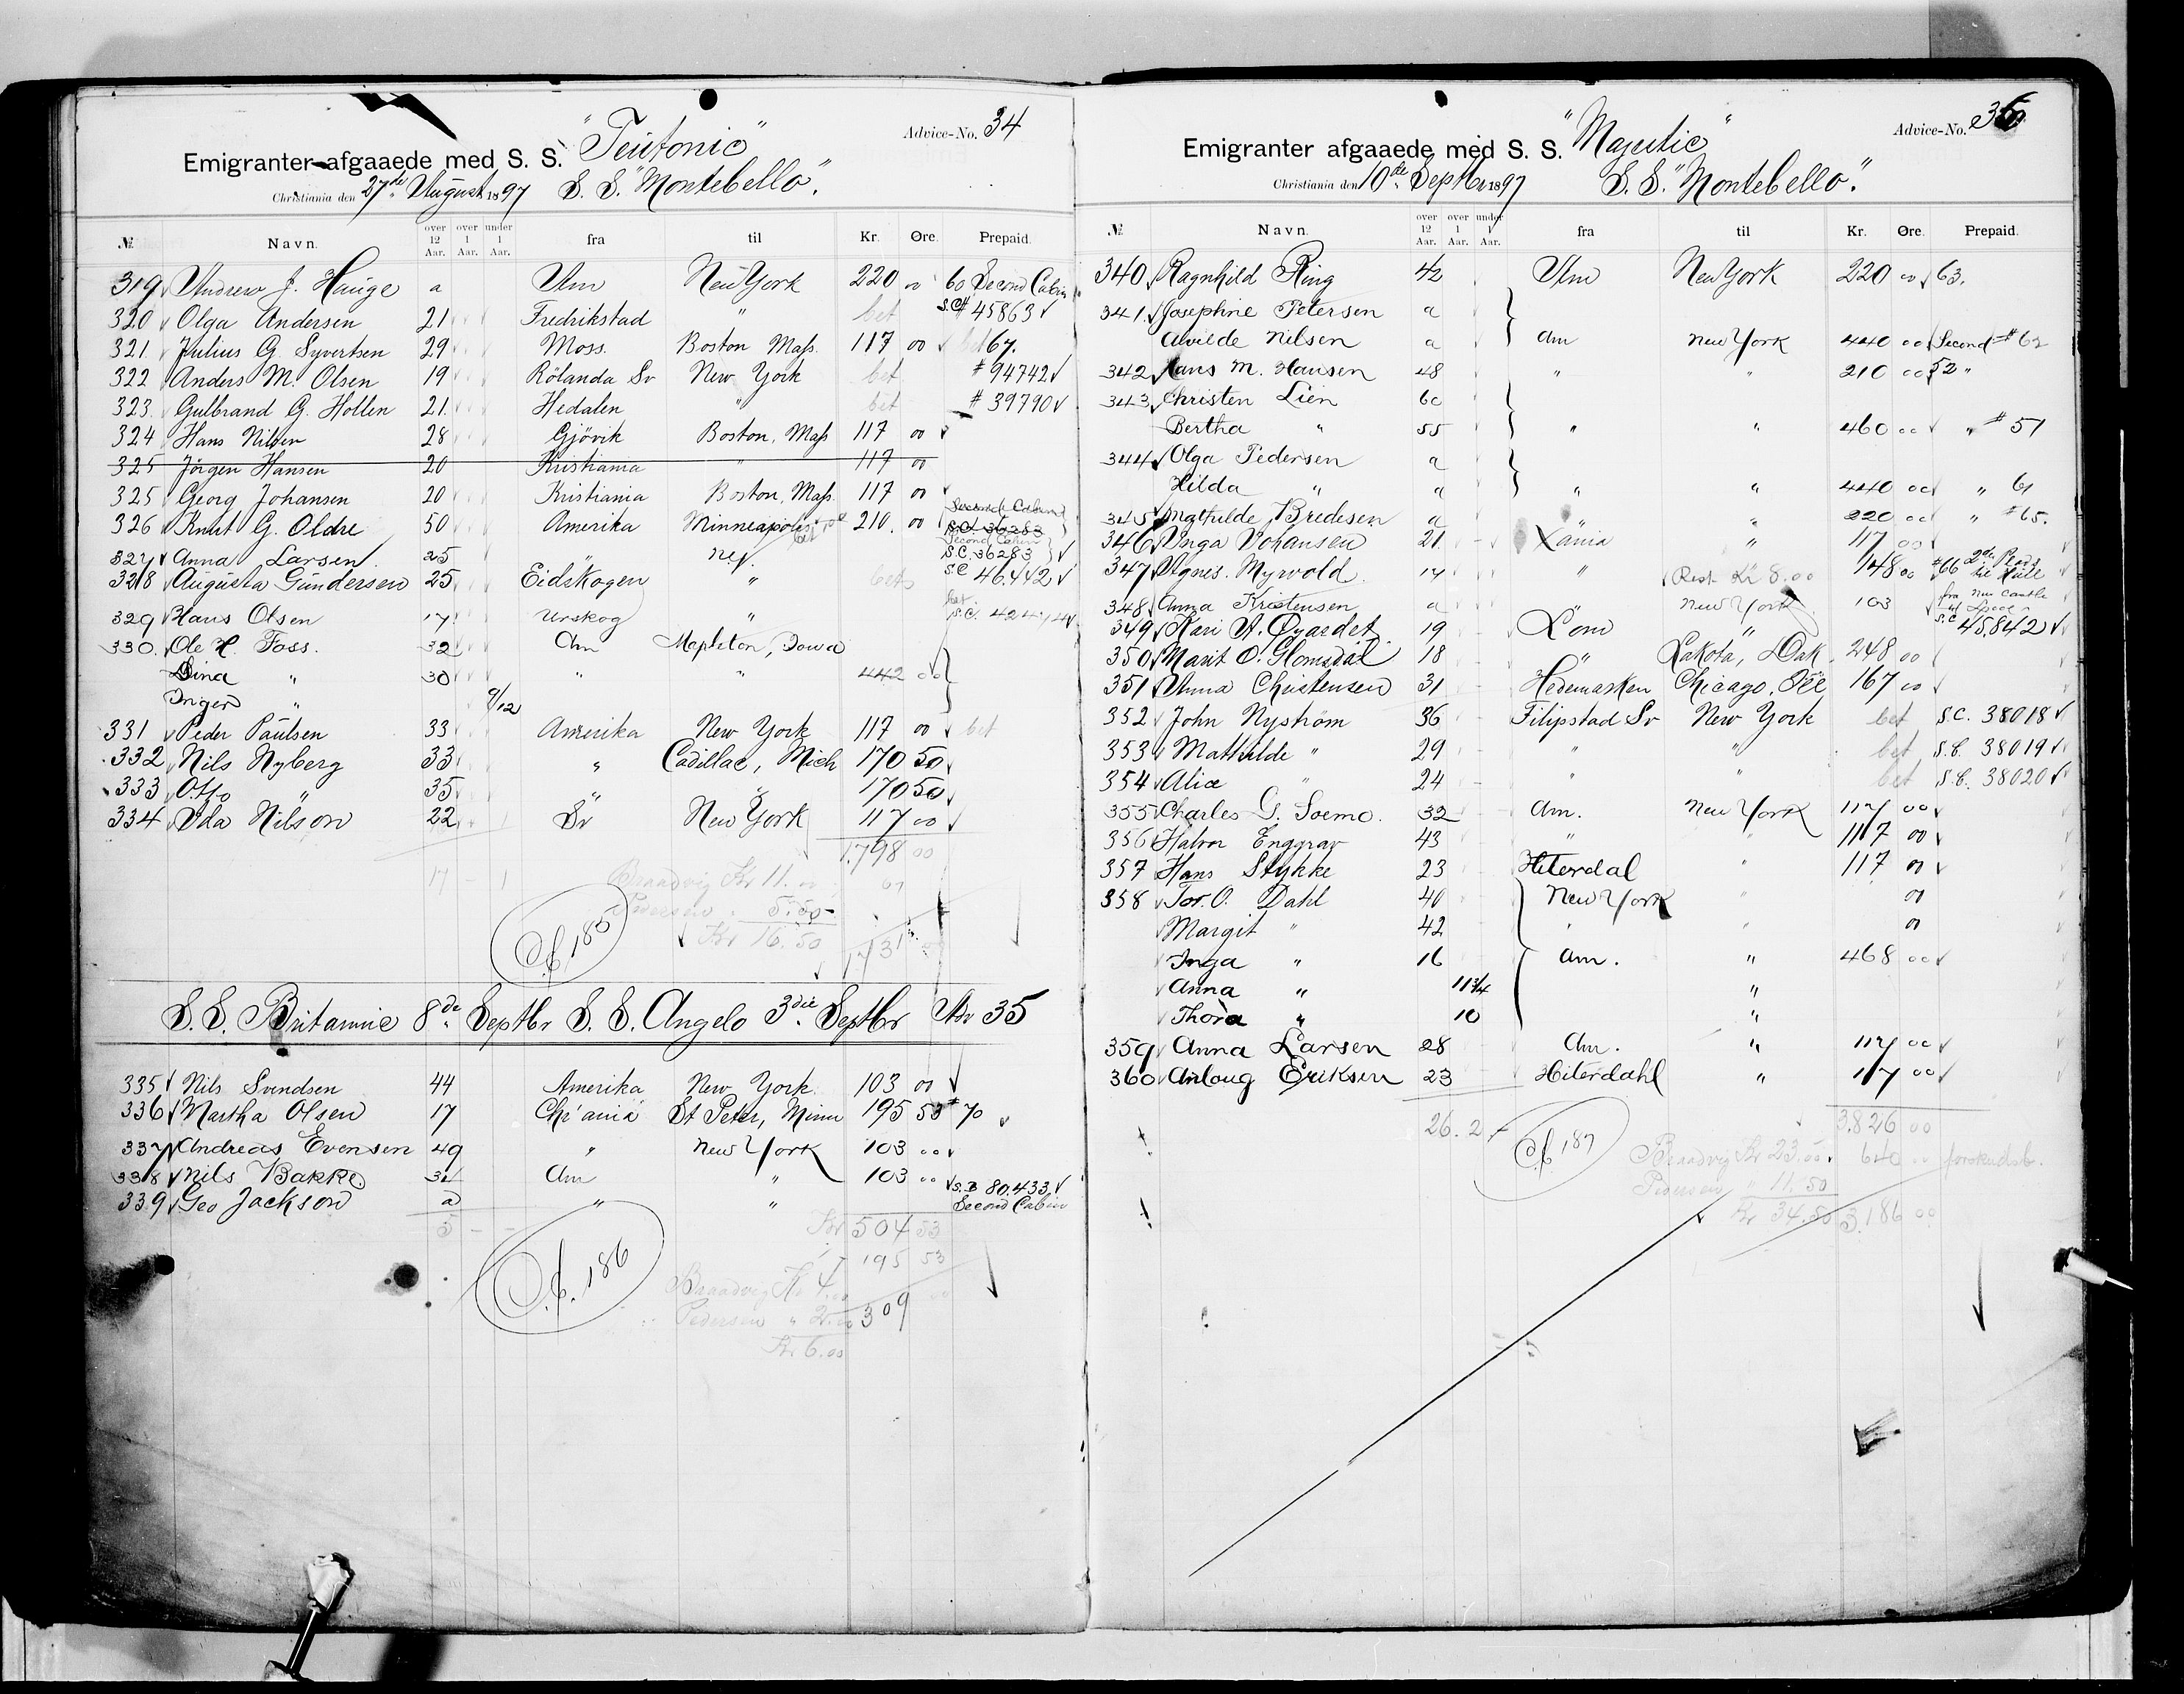 "Teutonic"
Advice-No. 34
Emigranter afgaaede med S. S.
Christiania den 27de August 1897 S. S. "Montebello".
№ Navn. over 12 Aar. over 1 Aar. under 1 Aar. fra til Kr. Øre. Prepaid.
319 Andrew J. Hauge a Am New York 220 00 60 Second Cabin
320 Olga Andersen 21 Fredrikstad " bet S.C.# 45863
321 Julius G. Syvertsen 29 Moss. Boston Mass. 117 00 67.
322 Anders M. Olsen 19 Rölanda Sv New York bet # 94742
323 Gulbrand G. Hollen 21 Hedalen " bet # 39790
324 Hans Nilsen 28 Gjövik Boston, Mass 117 00
325 Jörgen Hansen 20 Kristiania " 117 00
325 Georg Johansen 20 Kristiania Boston, Mass. 117 00
326 Knut G. Oldre 50 Amerika Minneapolis 210. 00 Second Cabin S.C. 36283
Second Cabin
327 Anna Larsen 25 " N.Y. S.C. 36283
328 Augusta Gundersen 25 Eidskogen " bet S.C 46.442
329 Hans Olsen 17 Urskog " bet. S.C. 42474
330. Ole H. Foss. 32 Am Mapleton, Iowa
Dina " 30 " " 442 00
Inger " 9/12
331 Peder Paulsen 33 Amerika New York 117 00 bet
332 Nils Nyberg 33 " Cadillac, Mich 170 50
333 Otto " 35 " " 170 50
334 Ida Nilson 22 Sv New York 117 00
1.798 00
17 - 1 Braadvig Kr 11.00
Pedersen " 5.50
Kr 16.50
Cf. 185
S. S. Britannic 8de Septbr S. S. Angelo 3die Septbr Adv 35
335 Nils Svendsen 44 Amerika New York 103 00
336 Martha Olsen 17 Chr'ania St Peter, Minn 195 53 # 70
337 Andreas Evensen 49 " New York 103 00
338 Nils Bakke 34 Am " 103 00
339 Geo Jackson a " " S.B 80.433 Second Cabin
5 - - Kr 504 53
Cf. 186 195 53
Braadvig Kr 4.00
Pedersen " 2.00 309
Kr 6.00
"Majestic"
Advice-No. 36
Emigranter afgaaede med S. S.
Christiania den 10de Septbr 1897 S. S. "Montebello".
№ Navn. over 12 Aar. over 1 Aar. under 1 Aar. fra til Kr. Øre. Prepaid.
340 Ragnhild Ring 42 Am New York 220 00 63.
341 Josephine Petersen a
Alvilde Nilsen a Am New York 440 00 Second # 62
342 Hans M. Hansen 48 " " 210 00 52 "
343 Christen Lien 60
Bertha " 55 " " 460 00 " # 51
344 Olga Pedersen a
Hilda " a " " 440 00 " 61
345 Mathilde Bredesen a " 220 00 " # 65.
346 Inga Johansen 21 Xania " 117 00
347 Agnes. Myrvold 17 " Rest Kr 8.00 148 00 #66 2de Plads til Hull
348 Anna Kristensen a " New York 103 fra New Castle
349 Kari A. Qvardet 19 Lom " S.C 45.842
350 Marit O. Glomsdal 18 " Lakota, Dak 248 00
351 Anna Christensen 31 Hedemarken Chicago, Ill 167 00
352 John Nyström 36 Filipstad Sv New York bet S.C. 38018
353 Mathilde " 29 " " bet S.C. 38019
354 Alice " 24 " " bet S.C. 38020
355 Charles G. Soemo. 32 Am. New York 117 00
356 Halvor Enggrav 43 " " 117 00
357 Hans Stykke 23 Hiterdal " 117 00
358 Tor. O. Dahl 40 New York " 00
Margit " 42 " " 00
Inga " 16 Am. " 468 00
Anna " 11 3/4 "
Thora " 10 "
359 Anna Larsen 28 Am. " 117 00
360 Anlaug Eriksen 23 Hiterdahl " 117 00
26. 2 3.826 00
Cf. 187 Braadvig Kr 23.00 640 00 forskudsb.
Pedersen " 11.50
Kr 34.50 3.186 00